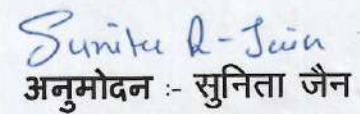 Sunita R-Jain
अनुमोदन :- सुनिता जैन